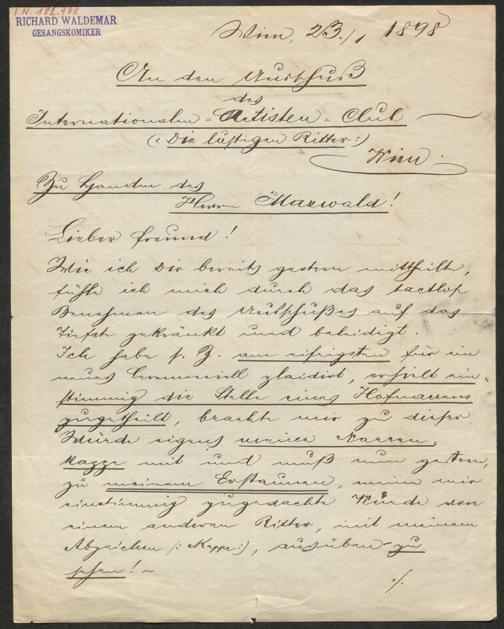 I.N. 182.488
RICHARD WALDEMAR
GESANGSKOMIKER
Wien, 23./1 1898
An den Ausschuß
des
Internationalen = Artisten = Club
(: Die lustigen Ritter :)
Wien.
Zu Handen des
Herrn Maxwald!
Lieber Freund!
Wie ich Dir bereits gestern mittheilte,
fühle ich mich durch das tactlose
Benehmen des Ausschußes auf das
Tiefste gekränkt und beleidigt.
Ich habe s. Z. am eifrigsten für ein
neues Ceremoniell plaidirt, erhielt ein-
stimmig die Stelle eines Hofnarren
zugetheilt, brachte mir zu dieser
Würde eigens meine Narren-
kappe mit und muß nun gestern,
zu meinem Erstaunen, meine mir
einstimmig zugedachte Würde von
einem anderen Ritter, mit meinem
Abzeichen (: Kappe :), ausüben zu
sehen! –
./.